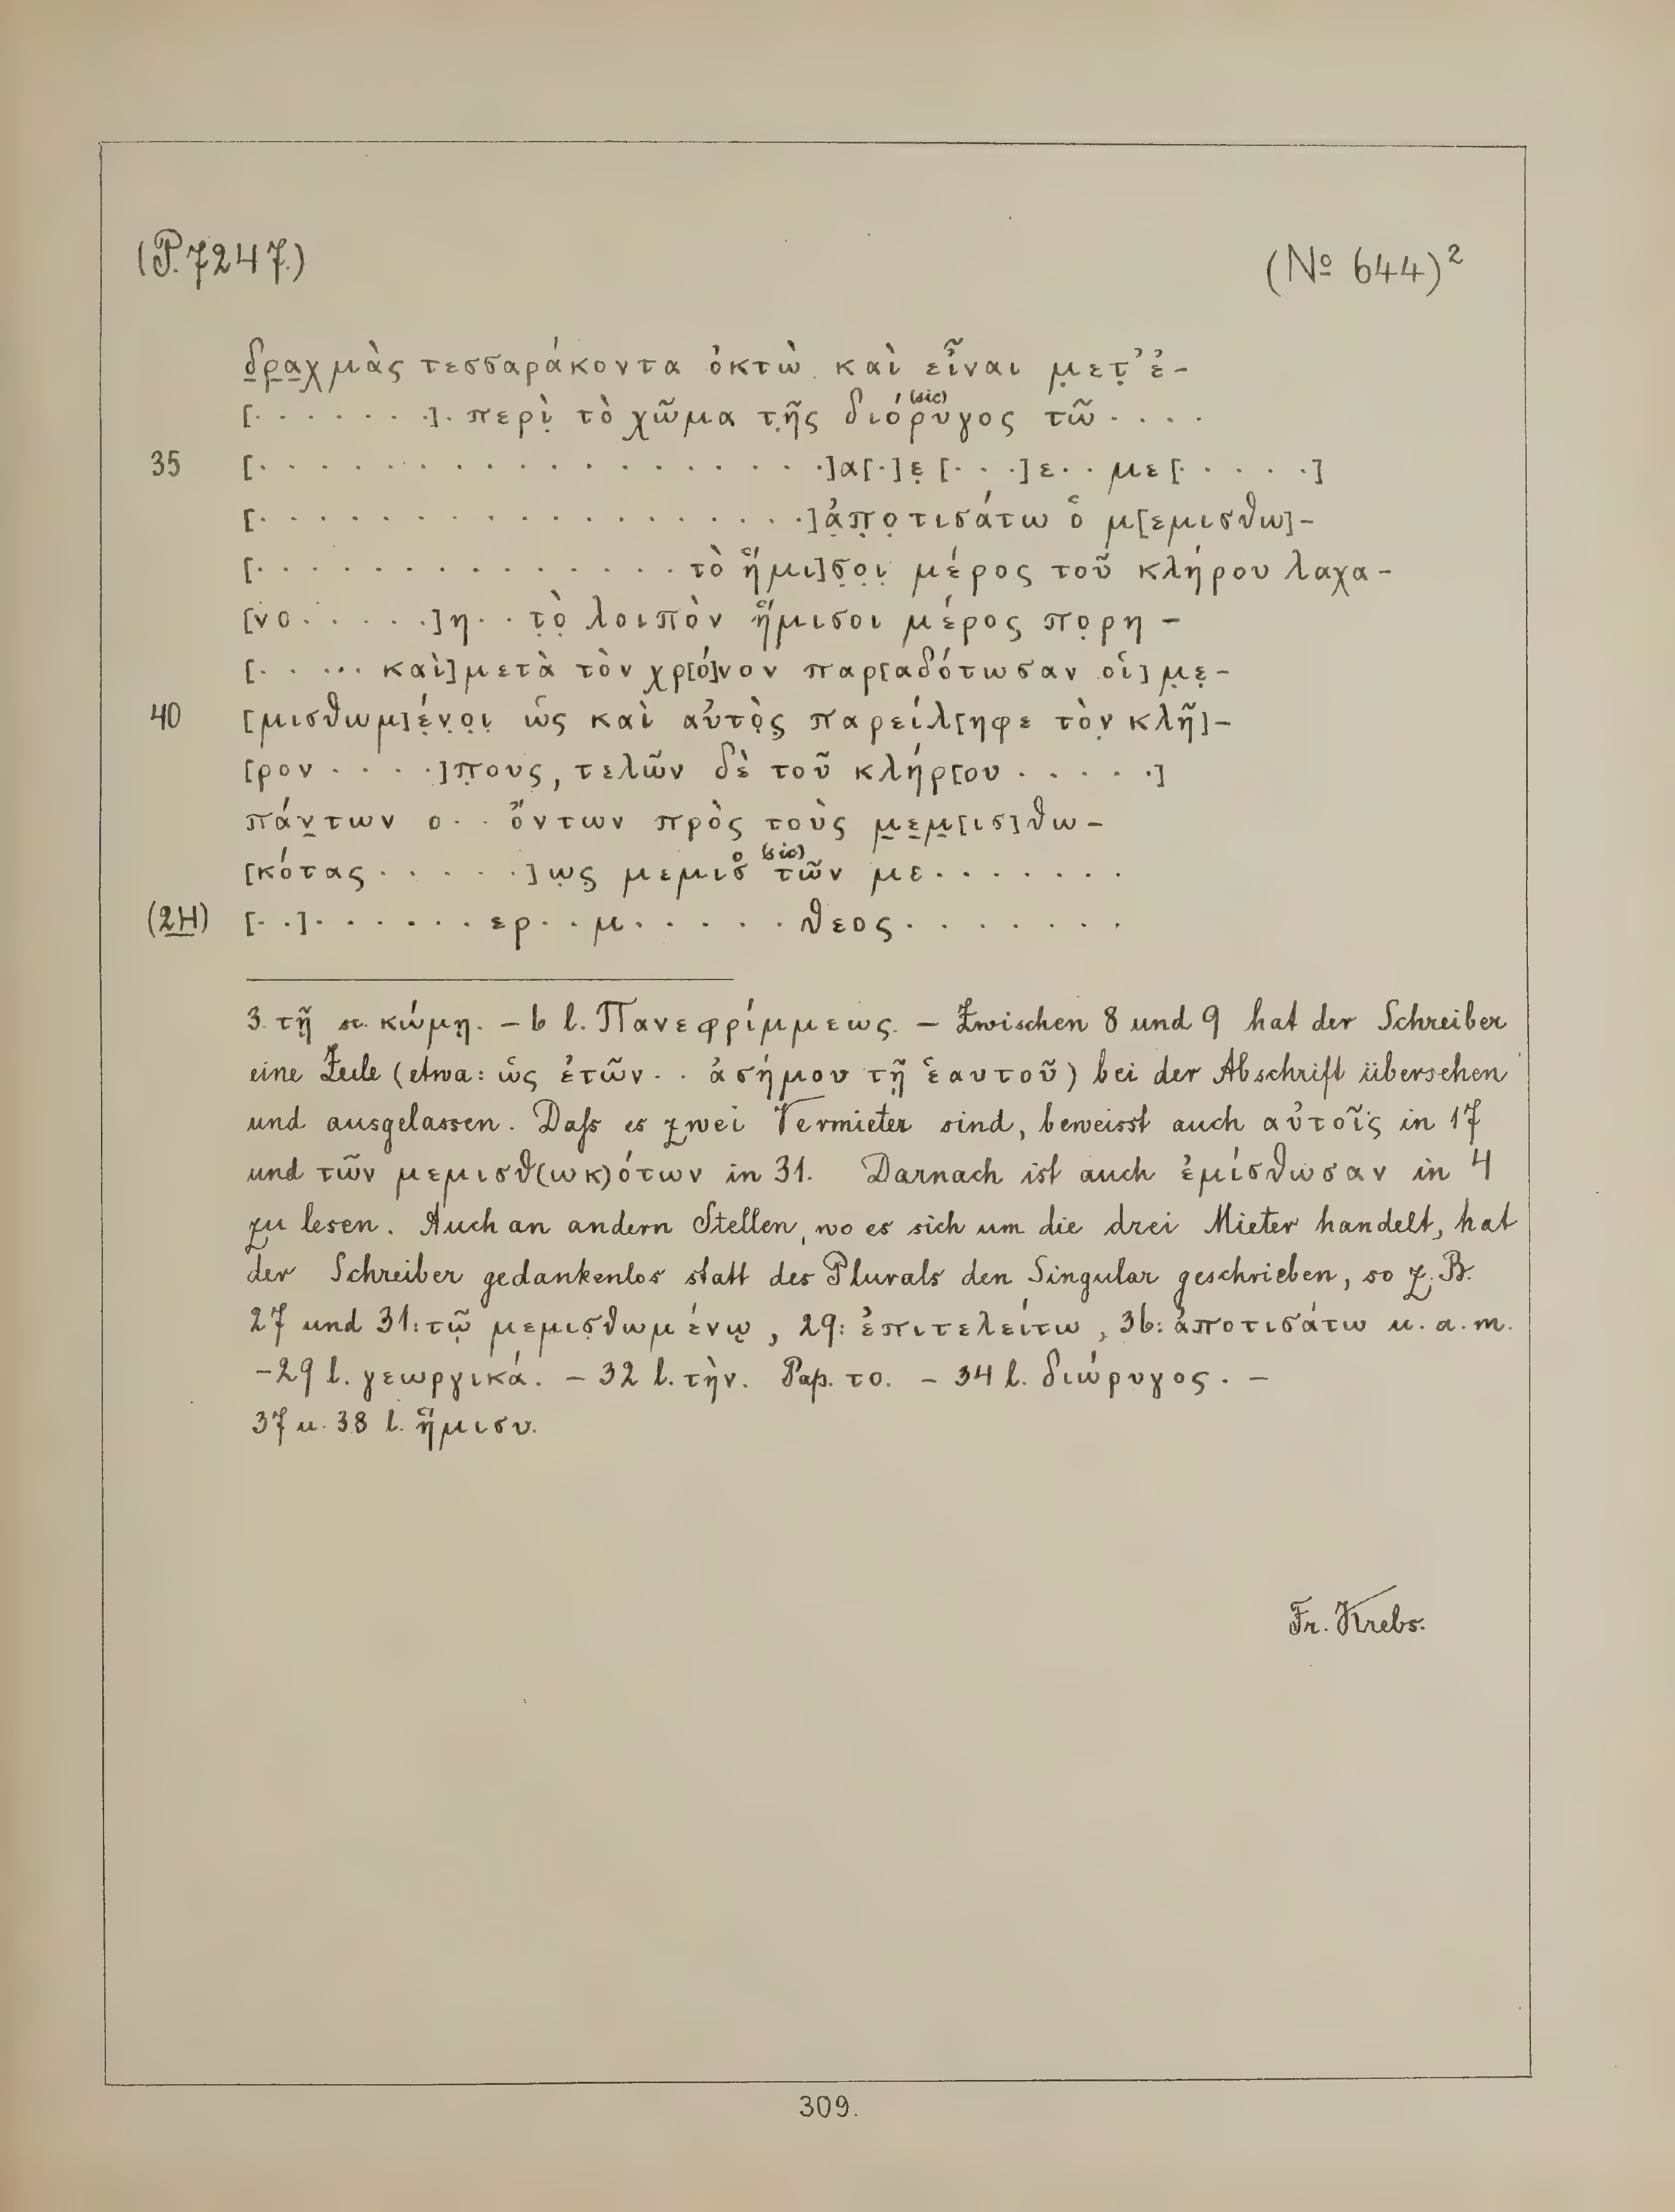 (P. 7247.) (No 644)²
δ̲ρ̲α̲χμὰς τεσσαράκοντα ὀκτὼ καὶ εἶναι μ̣ετ̣’ ἐ-
[· · · · · · ·]· περὶ̣ τὸ χῶμα τ̣ῆς διόρυγος (sic) τῶ · · · ·
35 [· · · · · · · · · · · · · · · · · · ·]α[·]ε̣[· · ·]ε· · με[· · · · ·]
[· · · · · · · · · · · · · · · · · · ·]ἀ̣π̣ο̣τισάτω ὁ μ[εμισθω]-
[· · · · · · · · · · · · · · · τὸ ἥμι]σ̣ο̣ι̣ μέρος τοῦ κλήρου λαχα-
[νο· · · · ·]η· · τ̣ὸ̣ λοιπὸν ἥμισοι μέρος πο̣ρη-
[· · ··· καὶ]μετὰ τὸν χρ[ό]νον παρ[αδότωσαν οἱ] μ̣ε̣-
40 [μισθωμ]έ̣ν̣ο̣ι̣ ὡς καὶ αὐτὸ̣ς̣ παρείλ[ηφε τὸν̣ κλῆ]-
[ρον · · · ·]π̣ους, τελῶν δὲ τοῦ κλήρ[ου · · · · ·]
πάν̲των ο· · ὄντων πρὸς τοὺς μ̲ε̲μ̲[ισ]θω-
[κότας · · · · ·]ω̣ς̣ μεμισ ο (sic) τῶν με· · · · · · ·
(2H) [· ·]· · · · · · ερ· · μ· · · · · θεος· · · · · · · ·
3. τῇ π. κώμῃ. – 6 l. Πανεφρίμμεως. – Zwischen 8 und 9 hat der Schreiber
eine Zeile (etwa: ὡς ἐτῶν · · ἀσήμου τῇ ἑαυτοῦ) bei der Abschrift übersehen
und ausgelassen. Daſs es zwei Vermieter sind, beweisst auch αὐτοῖς in 17
und τῶν μεμισθ(ωκ)ότων in 31. Darnach ist auch ἐμίσθωσαν in 4
zu lesen. Auch an andern Stellen, wo es sich um die drei Mieter handelt, hat
der Schreiber gedankenlos statt des Plurals den Singular geschrieben, so z. B.
27 und 31: τῷ μεμισθωμένῳ, 29: ἐπιτελείτω, 36: ἀποτισάτω u. a. m.
-29 l. γεωργικά. – 32 l. τὴν. Pap. το. – 34 l. διώρυγος. –
37 u. 38 l. ἥμισυ.
Fr. Krebs.
309.